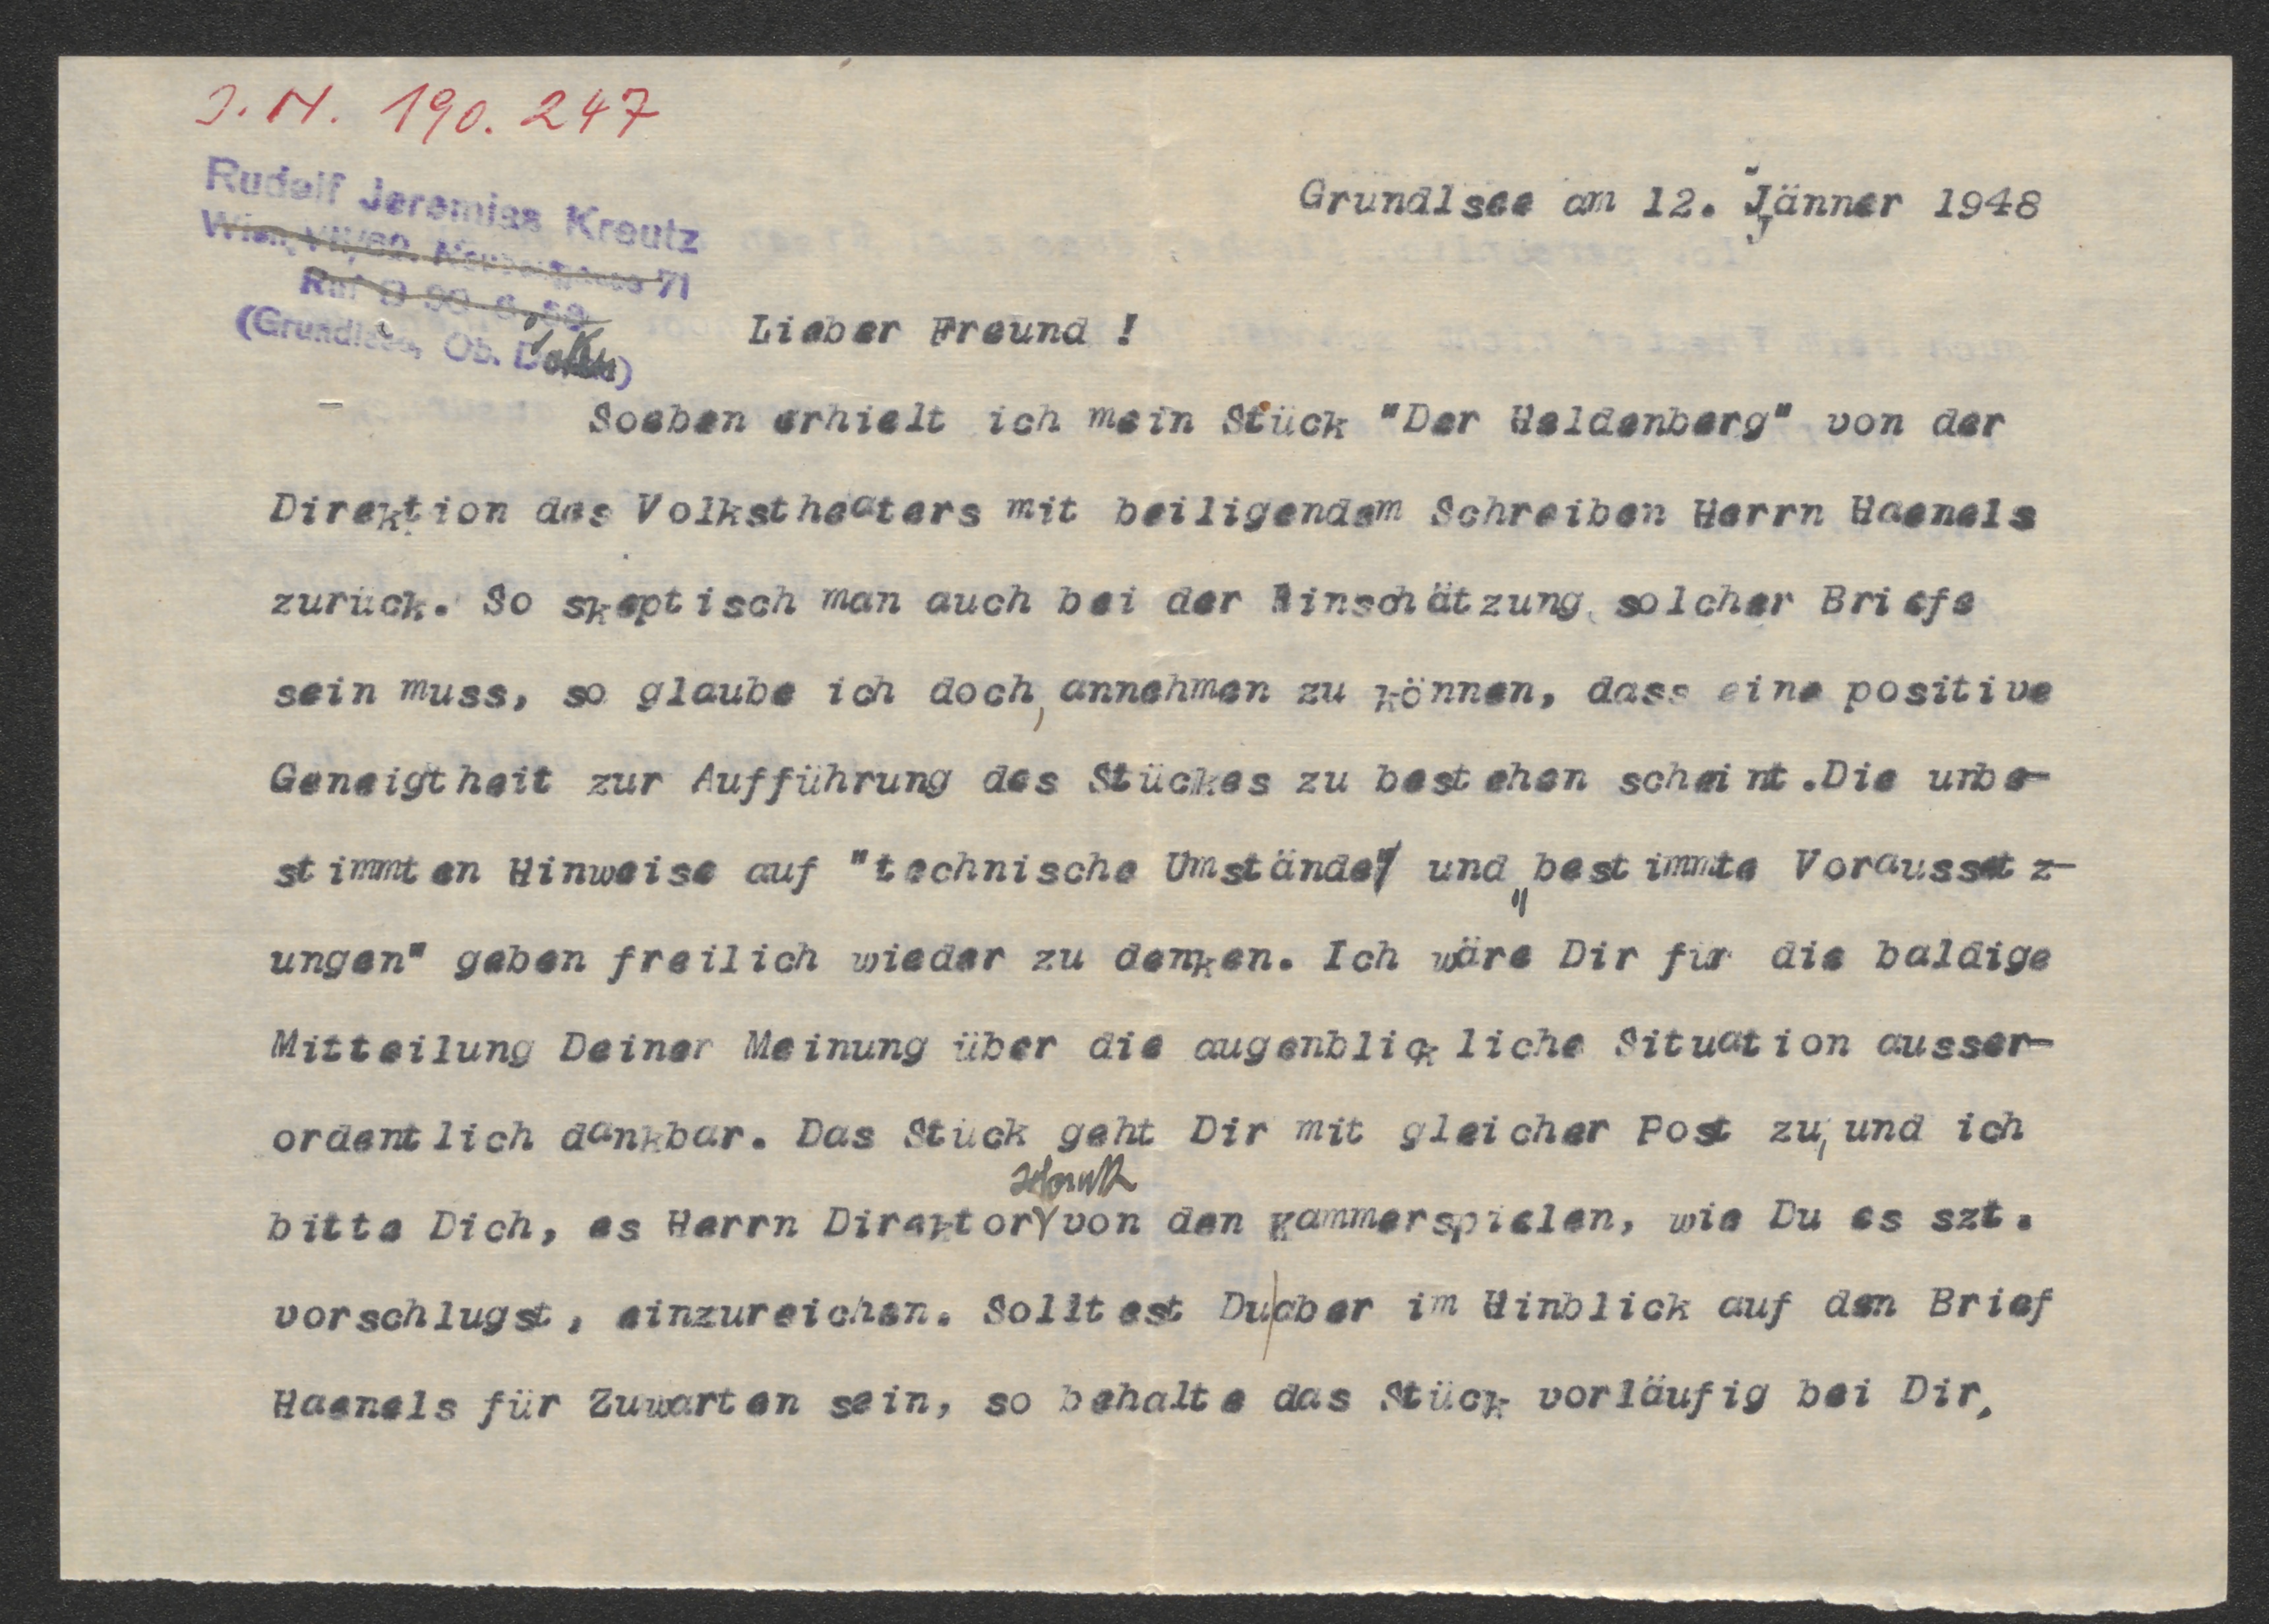 J.N. 190.247
Rudolf Jeremias Kreutz
Wien, VII/62. 71
Ruf B
(Grundlsee, Ob. Don)
Grundlsee am 12. Jänner 1948
Lieber Freund !
Soeben erhielt ich mein Stück "Der Heldenberg" von der
Direktion des Volkstheaters mit beiligendem Schreiben Herrn Haenels
zurück. So skeptisch man auch bei der Einschätzung solcher Briefe
sein muss, so glaube ich doch, annehmen zu können, dass eine positive
Geneigtheit zur Aufführung des Stückes zu bestehen scheint.Die unbe-
stimmten Hinweise auf "technische Umstände" und "bestimmte Voraussetz-
ungen" geben freilich wieder zu denken. Ich wäre Dir für die baldige
Mitteilung Deiner Meinung über die augenblickliche Situation ausser-
ordentlich dankbar. Das Stück geht Dir mit gleicher Post zu, und ich
bitte Dich, es Herrn Direktor von den Kammerspielen, wie Du es szt.
vorschlugst, einzureichen. Solltest Du aber im Hinblick auf den Brief
Haenels für Zuwarten sein, so behalte das Stück vorläufig bei Dir.